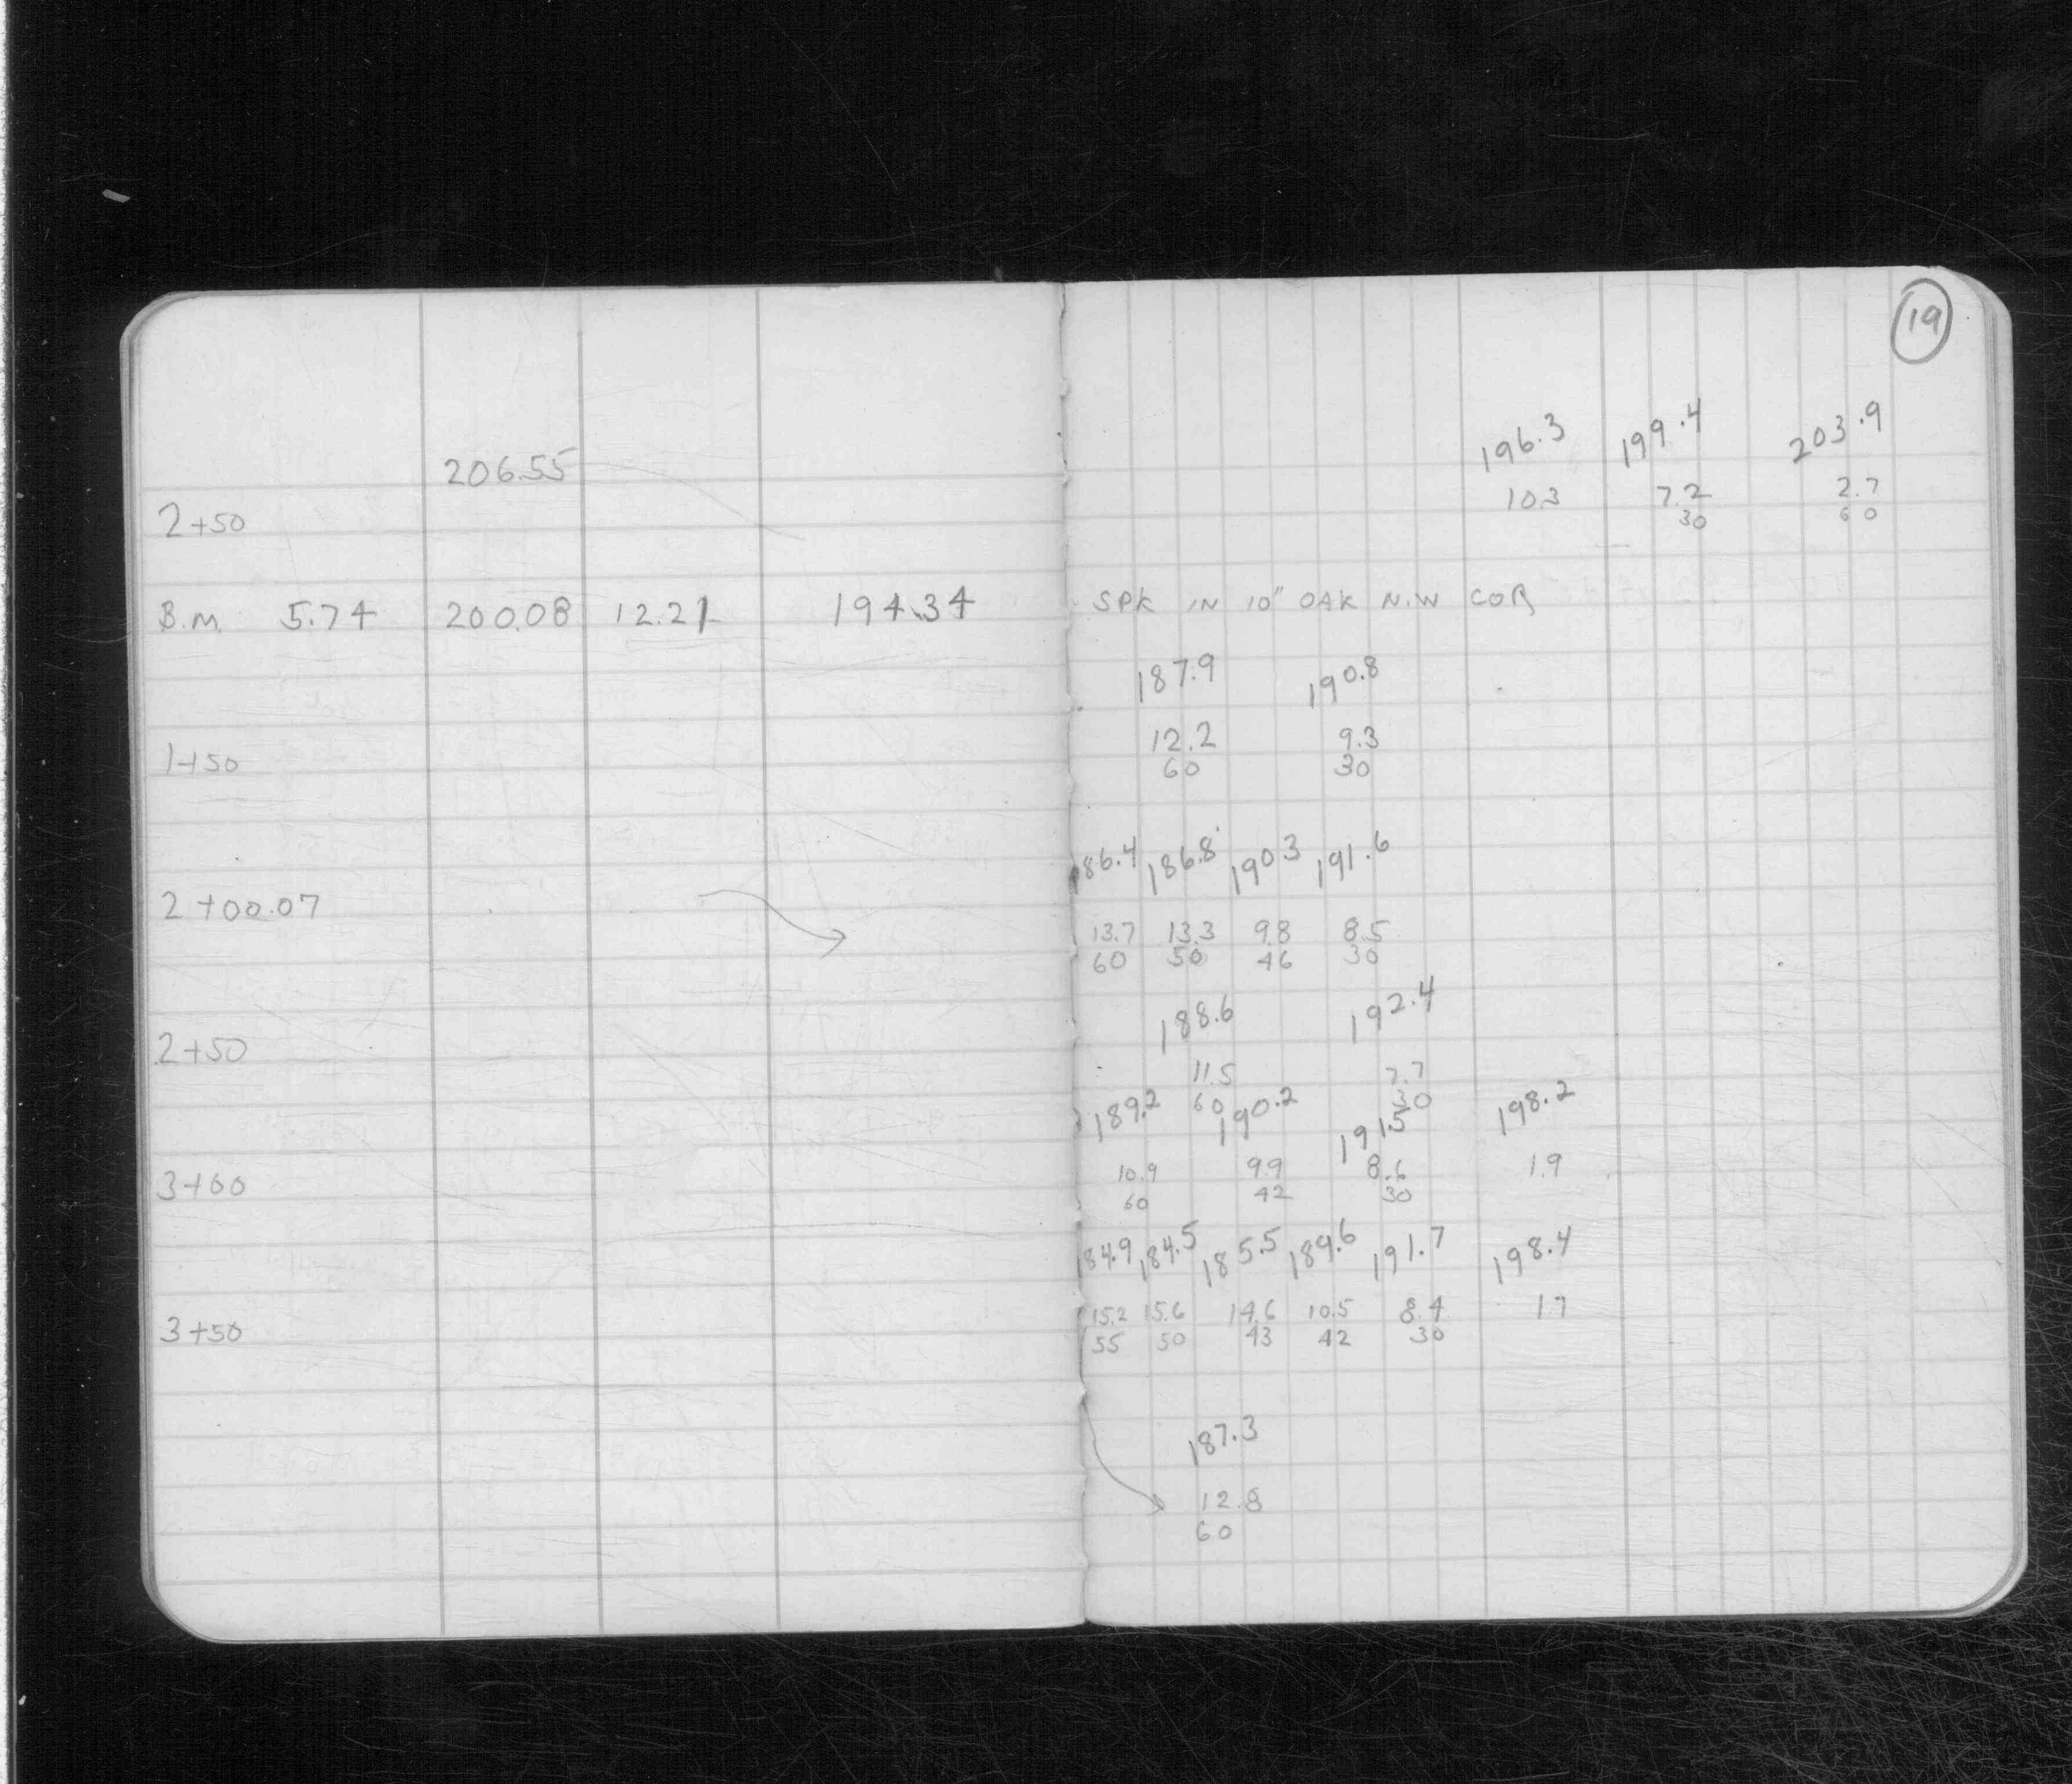 19
196.3 199.4 203.9
206.55
10.3 7.2 2.7
2+50
30 60
B.M. 5.74 200.08 12.21 194.34 SPK IN 10" OAK N.W COR
187.9 190.8
12.2 9.3
1+50
60 30
186.4 186.8 190.3 191.6
2+00.07
13.7 13.3 9.8 8.5
60 50 46 30
188.6 192.4
2+50
11.5 7.7
60 30
189.2 190.2 191.5 198.2
10.9 9.9 8.6 1.9
3+00
60 42 30
184.9 184.5 185.5 189.6 191.7 198.4
15.2 15.6 14.6 10.5 8.4 1.7
3+50
55 50 43 42 30
187.3
12.8
60